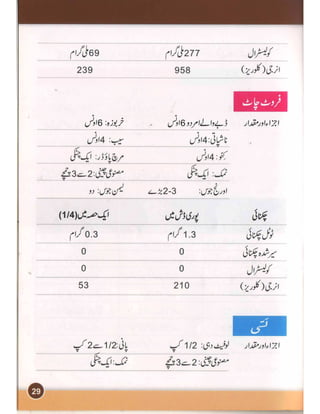 کولیسٹرال 277 ملی گرام 69 ملی گرام
انرجی (کلوریز) 958 239
فروٹ چاٹ
اجزاء اور مقدار ڈبے والے امرود 6 اونس خربوزہ: 6 اونس
ناشپاتی: 4 اونس سیب: 4 اونس
کنو: 4 اونس مرچ پاؤڈر: ایک چٹکی
نمک: ایک چٹکی مصنوعی چینی: 2 سے 3 چمچے
اورنج جوس: 2-3 بڑے لیمن جوس: دو
چکنائی پوری ڈش میں ایک حصہ میں (1/4)
ٹوٹل چکنائی 1.3 گرام 0.3 گرام
سیر شدہ چکنائی 0 0
کولیسٹرال 0 0
انرجی (کلوریز) 210 53
لسّی
اجزاء اور مقدار لوفیٹ دہی: 1/2 کپ پانی: 1/2 سے 2 کپ
مصنوعی چینی: 2 سے 3 چمچے نمک: ایک چٹکی
29